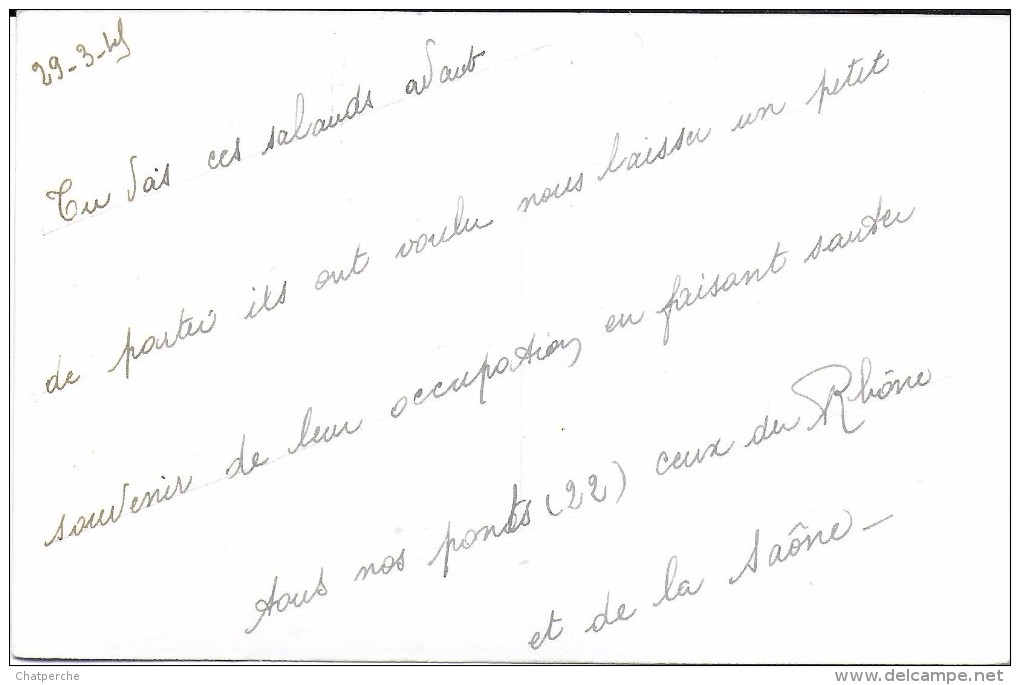 29-3-45
Tu vois ces salauds avant
de partir ils ont voulu nous laisser un petit
souvenir de leur occupation, en faisant sauter
tous nos ponts (22) ceux du Rhône
et de la Saône —
Chatperche
www.delcampe.net